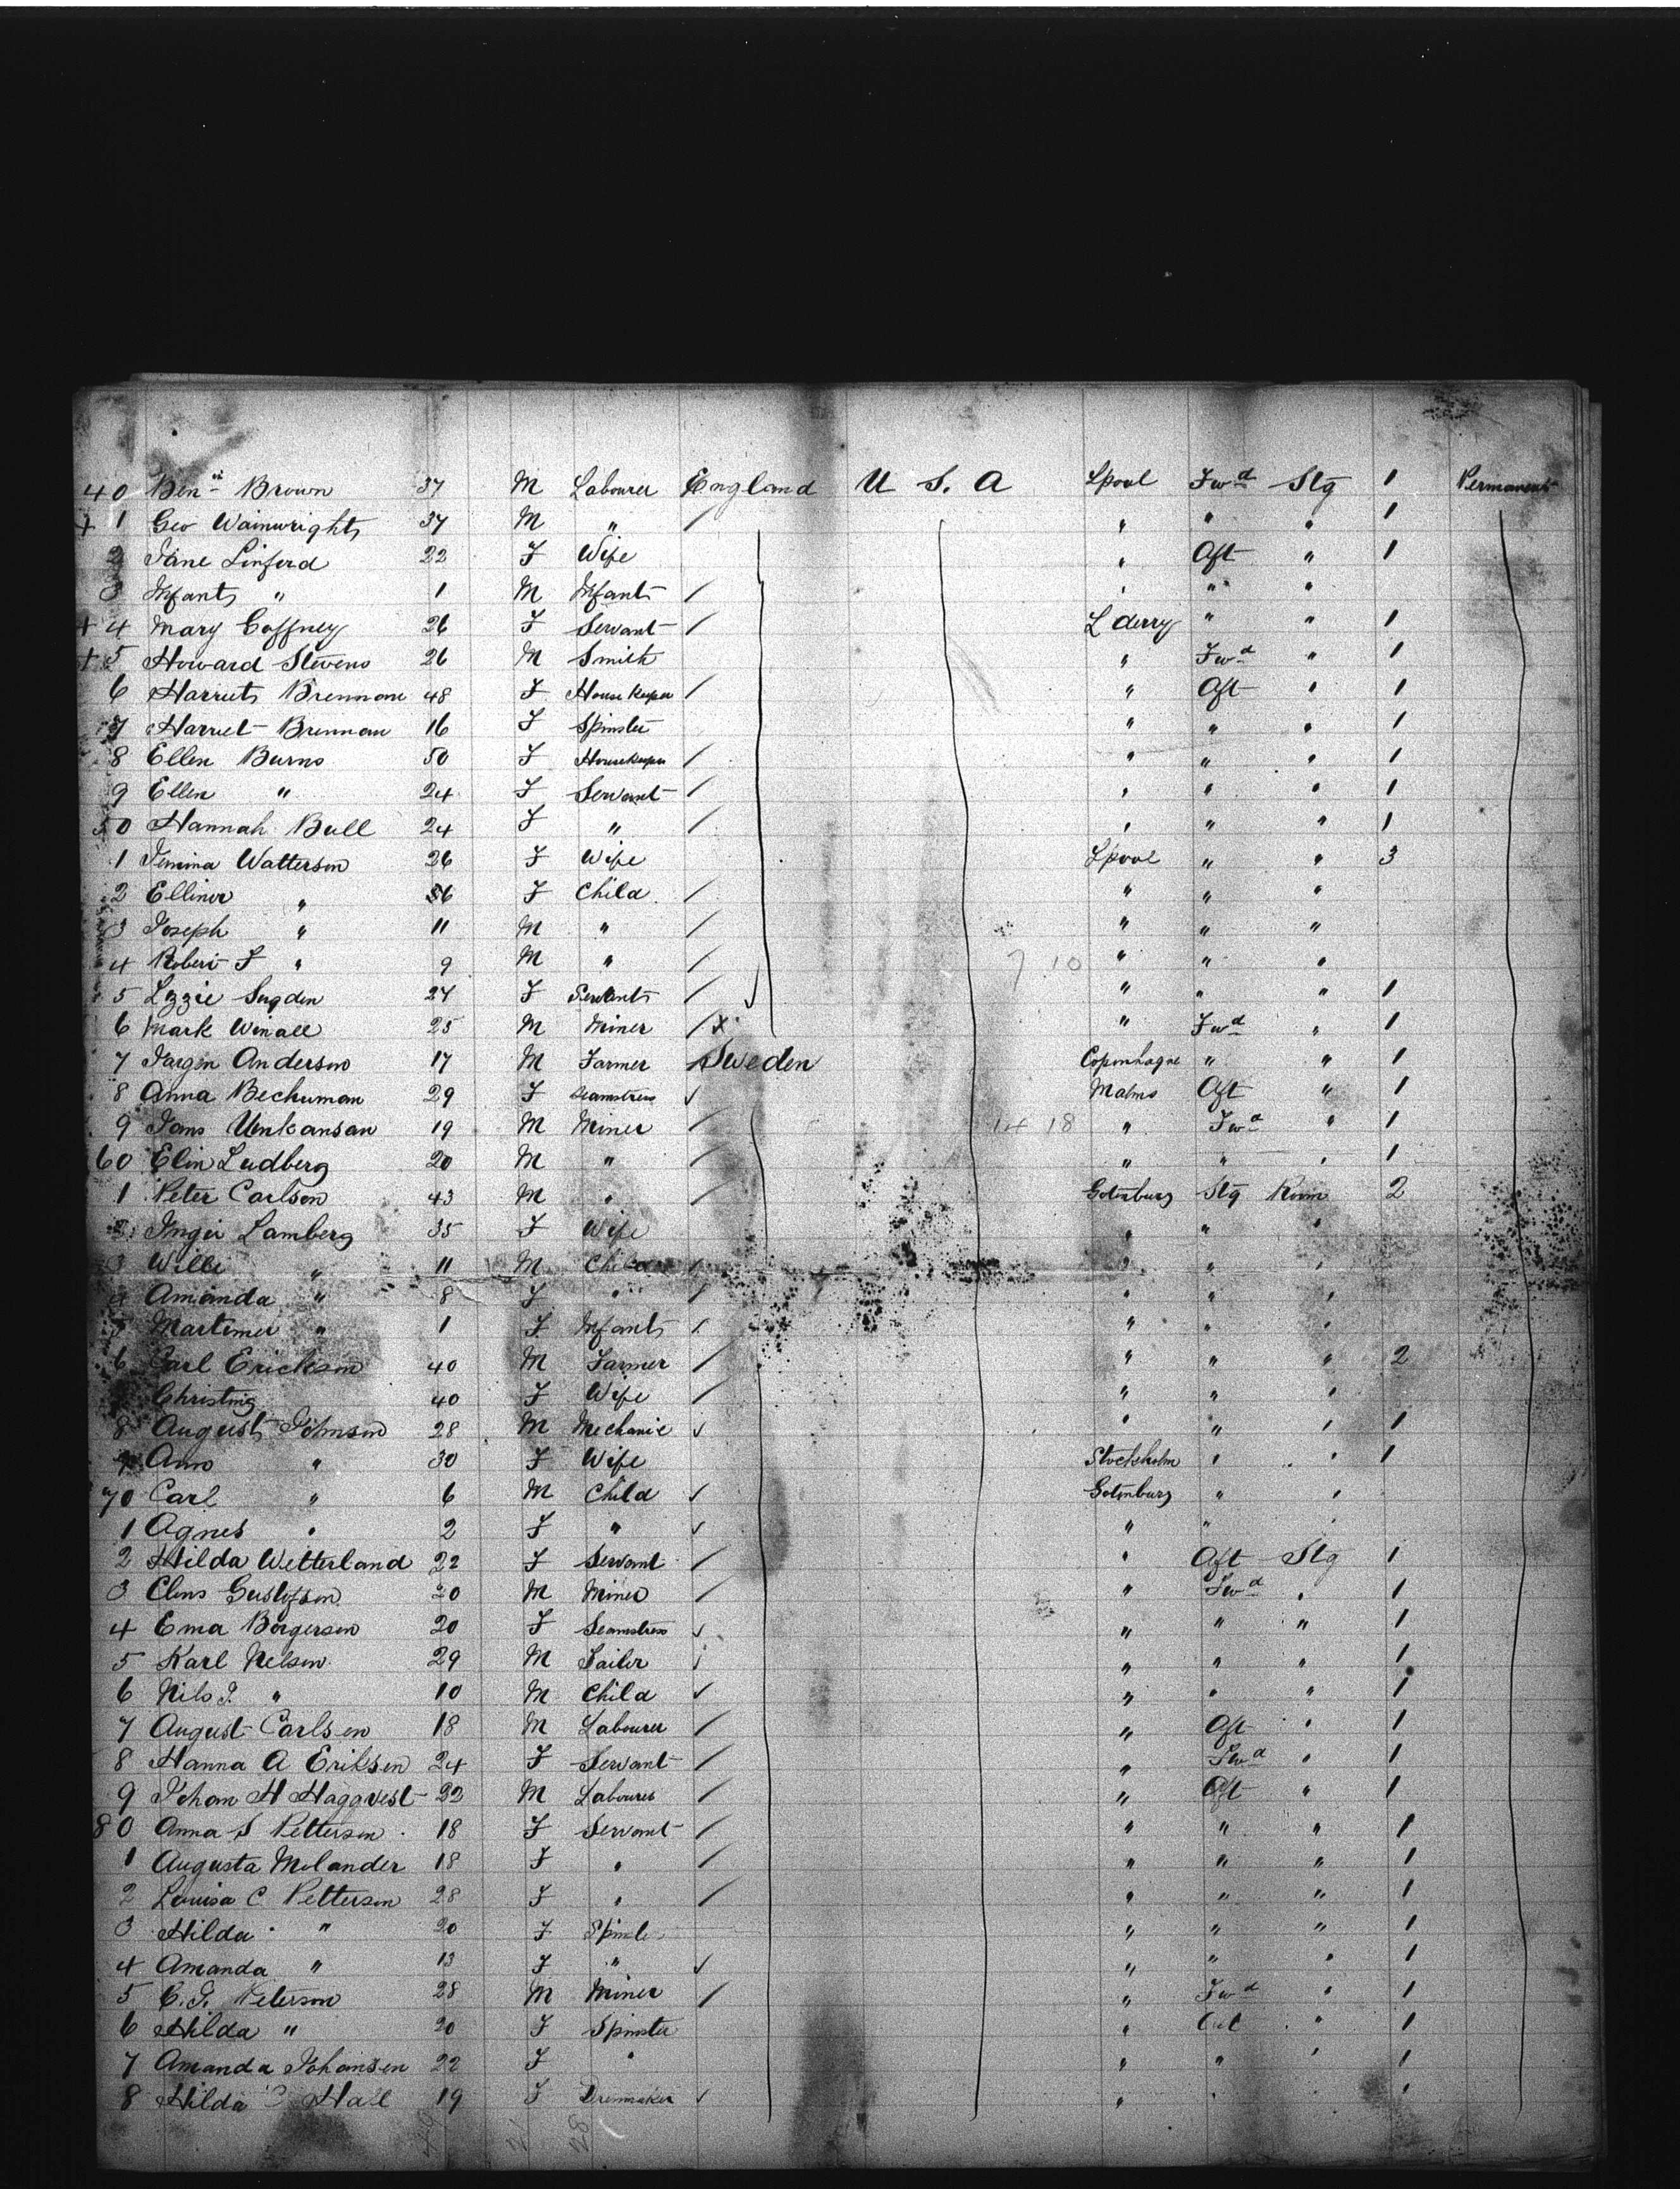 40 Benⁿ Brown 37 M Labourer England U S. A Lpool Fwd Stg 1 Permanent
+ 1 Geo Wainwright 37 M " / " " " 1
2 Jane Linford 22 F Wife " Aft " 1
3 Infant " 1 M Infant / " " "
+ 4 Mary Coffney 26 F Servant / L derry " " 1
+ 5 Howard Stevens 26 M Smith " Fwd " 1
6 Harriet Brennan 48 F House Keeper / " Aft " 1
7 Harriet Brennan 16 F Spinster " " " 1
8 Ellen Burns 50 F Housekeeper / " " " 1
9 Ellen " 24 F Servant / " " " 1
50 Hannah Bull 24 F " / " " " 1
1 Jemima Watterson 26 F Wife Lpool " " 3
2 Ellinor " F Child / " " "
3 Joseph " 11 M " / " " "
4 Robert J " 9 M " / 7 10 " " "
5 Lizzie Sugden 24 F Servant / " " " 1
6 Mark Winall 25 M Miner / X " Fwd " 1
7 Jargen Anderson 17 M Farmer Sweden Copenhagne " " 1
8 Anna Bechuman 29 F Seamstress ✓ Malmo Aft " 1
9 Jans 19 M Miner / 14 18 " Fwd " 1
60 Elin Ludberg 20 M " / " " " 1
1 Peter Carlson 43 M " / Gotenburg Stg Room 2
2 Inger Lamberg 35 F Wife " " "
3 Willi " 11 M Child / " " "
4 Amanda " 8 F " / " " "
5 Martimer " 1 F Infant / " " "
6 Carl Erickson 40 M Farmer / " " " 2
Christing 40 F Wife / " " "
8 August Johnson 28 M Mechanic ✓ " " " 1
9 Ann " 30 F Wife Stockholm " " 1
70 Carl " 6 M Child ✓ Gotenburg " "
1 Agnes " 2 F " ✓ " " "
2 Hilda Wetterland 22 F Servant / " Aft Stg 1
3 Clens Gustofson 20 M Miner / " Fwd " 1
4 Ema Borgerson 20 F Seamstress ✓ " " " 1
5 Karl Nelson 29 M Tailer ✓ " " " 1
6 Nils J. " 10 M Child ✓ " " " 1
7 August Carlsen 18 M Labourer / " Aft " 1
8 Hanna A Eriksen 24 F Servant / " Fwd " 1
9 Johan H Haggvest 22 M Labourer / " Aft " 1
80 Anna S Petterson 18 F Servant / " " " 1
1 Augusta Molander 18 F " / " " " 1
2 Louisa C Petterson 28 F " / " " " 1
3 Hilda " 20 F " " " 1
4 Amanda " 13 F " ✓ " " " 1
5 C. J. Peterson 28 M Miner / " Fwd " 1
6 Hilda " 20 F Spinster " " 1
7 Amanda Johansen 22 F " " " " 1
8 Hilda C Hall 19 F Dressmaker ✓ " " " 1